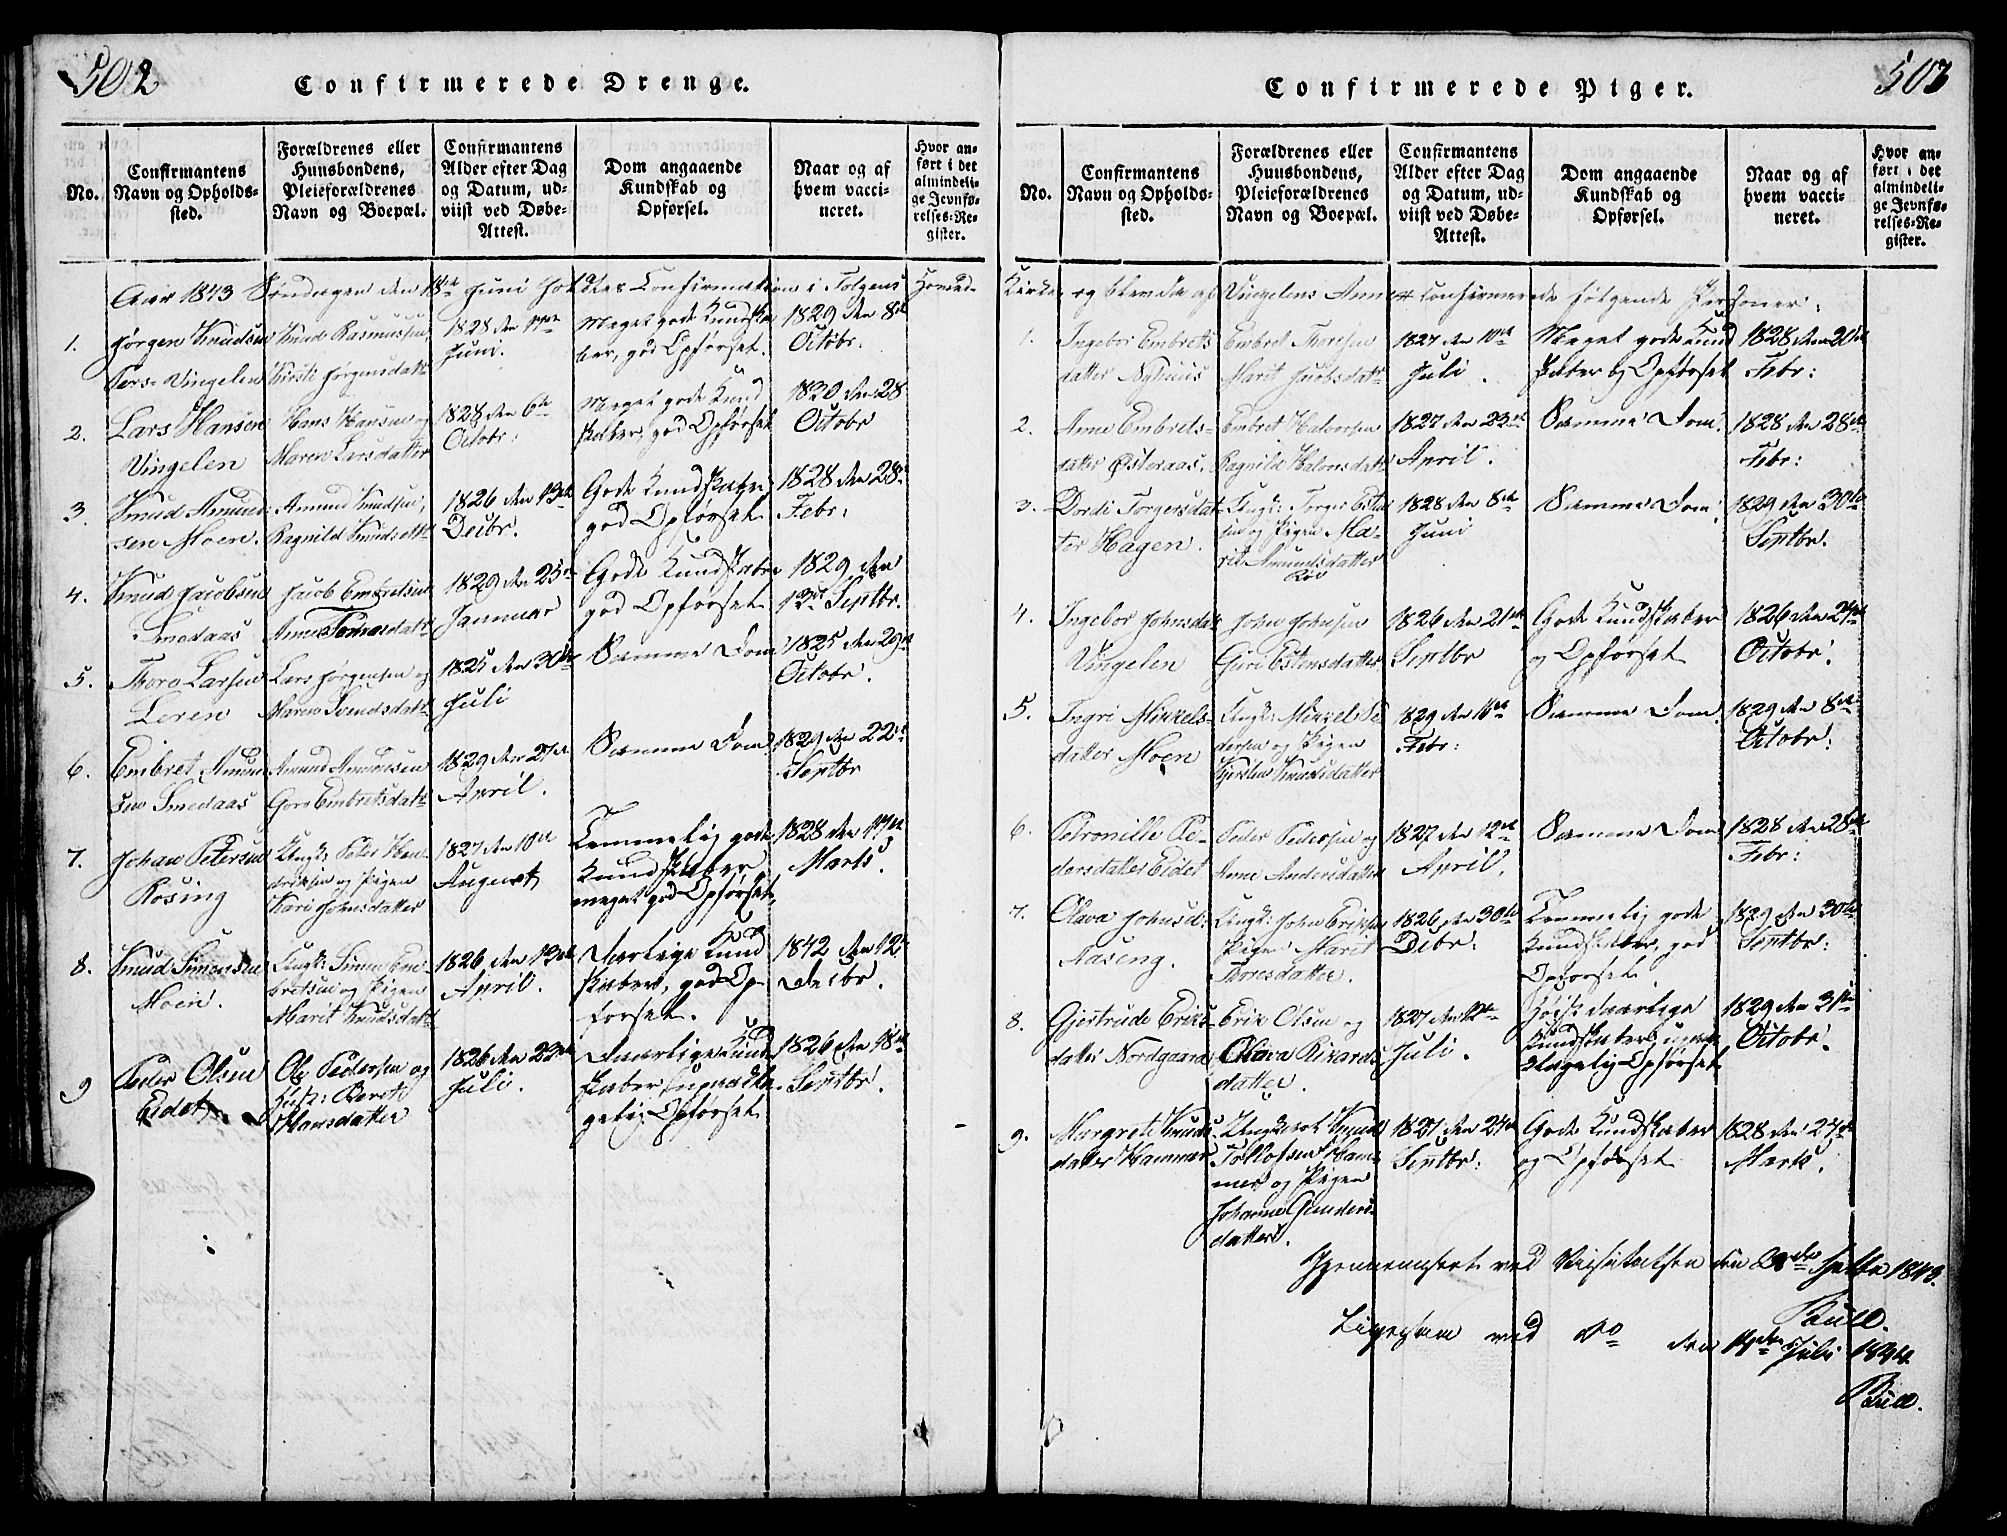 502
Confirmerede Drenge.
No.
Confirmantens
Navn og Opholds-
sted.
Forældrenes eller
Huusbondens,
Pleieforældrenes
Navn og Boepæl.
Confirmantens
Alder efter Dag
og Datum, ud-
viist ved Døbe-
Attest.
Dom angaaende
Kundskab og
Opførsel.
Naar og af
hvem vacci-
neret.
Hvor an-
ført i det
almindeli-
ge Jevnfø-
relses-Re-
gister.
Aar 1843 Søndagen den 18de Juni holdtes Confirmation i Tolgens Hoved-
1.
Jørgen Knudsen
Vingelen
Knud Rasmussen
Kirsti Jørgensdatt
1828 den
Juni.
Meget gode Kundska
ber, god Opførsel.
1829 den 8de
Octobr.
2.
Lars Hansen
Vingelen
Hans Hansen og
Maren Larsdatter
1828 den 6te
Octobr:
Meget gode Kund
skaber, god Opførsel
1830 den 28
Octobr
3.
Knud Amund
sen Moen.
Amund Knudsen,
Ragnild Knudsdatt
1826 den 13de
Decbr.
Gode Kundskaber,
god Opførsel
1828 den 28
Febr:
4.
Knud Jacobsen
Smedaas
Jacob Embretsen
Anne
1829 den 25
Januar
Gode Kundskaber
god Opførsel
1829 den
13de Septbr.
5.
Thore Larsen
Leren
Lars Jørgensen og
Maren Svendsdatt
1825 den 30te
Juli
Samme Dom
1825 den 29
Octobr.
6.
Embret Amund
sen Smedaas
Amund Amundsen
Goro Embretsdatt
1829 den 27de
April.
Samme Dom
1829 den 22
Septbr
7.
Johan Petersen
Røsing
Ungk: Peter Hen-
driksen og Pigen
Kari Johnsdatter
1827 den 19de
August
Temmelig gode
Kundskaber,
meget god Opførsel,
1828 den 17de
Marts.
8.
Knud Simensen
Moen.
Ungk: Simen Em-
bretsen og Pigen
Marit Knudsdatt
1826 den 13de
April.
Daarlige Kund
skaber, god Op-
førsel.
1842 den 12
Decbr.
9
Peder Olsen
Eidet
Ole Pedersen og
Hust: Berit
Hansdatter
1826 den 23de
Juli.
Daarlige Kund-
skaber, upaakla-
gelig Opførsel
1826 den 18de
Septbr.
503
Confirmerede Piger.
No.
Confirmantens
Navn og Opholds-
sted.
Forældrenes eller
Huusbondens,
Pleieforældrenes
Navn og Boepæl.
Confirmantens
Alder efter Dag
og Datum, ud-
viist ved Døbe-
Attest.
Dom angaaende
Kundskab og
Opførsel.
Naar og af
hvem vacci-
neret.
Hvor an-
ført i det
almindeli-
ge Jevnfø-
relses-Re-
gister.
Kirke og bleve da af Vingelens Annex confirmerede følgende Personer:
1.
Ingebor Embrets
datter Nyhuus
Embret Thoresen
Marit Jacobsdatt
1827 den 10de
Juli.
Meget gode Kund
skaber og Opførsel
1828 den 20de
Febr:
2.
Anne Embrets-
datter Østeraas.
Embret Halvorsen
Ragnild Halvorsdatt
1827 den 23de
April.
Samme Dom.
1828 den 28de
Febr:
3.
Dordi Torgersdat
ter Hagen.
Ungk: Torger Este
sen og Pigen Ma-
rit Amundsdatter
Røe
1828 den 8de
Juni
Samme Dom.
1829 den 30te
Septbr.
4.
Ingebor Johnsdatt
Vingelen
John Johnsen
Guri Estensdatter
1826 den 21de
Septbr
Gode Kundskaber
og Opførsel
1826 den 24de
Octobr.
5.
Ingri Mikkels-
datter Moen
Ungk: Mikkel Pe
dersen og Pigen
Kjersten Knudsdatter
1829 den 11te
Febr:
Samme Dom.
1829 den 8de
Octobr:
6.
Petronille Pe-
dersdatter Eidet
Peder Pedersen og
Anne Andersdatter
1827 den 12te
April.
Samme Dom
1828 den 28de
Febr:
7.
Olava Johnsd:
Aaseng.
Ungk: John Eriksen
Pigen Marit
Thoresdatter.
1826 den 30te
Debr:
Temmelig gode
Kundskaber, god
Opførsel.
1829 den 30te
Septbr:
8.
Gjertrude Eriks-
datter Nordgaard
Erik Olsen og
Olava Rikards
datter.
1827 den 12te
Juli.
Høist daarlige
Kundskaber upaa
klagelig Opførsel
1829 den 31te
Octobr.
9.
Margrete Knuds
datter Hammer
Ungkarl Knud
Tollofsen Ham-
mer og Pigen
Johanne Gunders
datter.
1827 den 24de
Septbr:
Gode Kundskaber
og Opførsel
1828 den 27de
Marts.
Gjennemseet ved Visitatsen den 1843.
Bull.
Ligesaa ved Do den 14de Juli 1844
Bull.